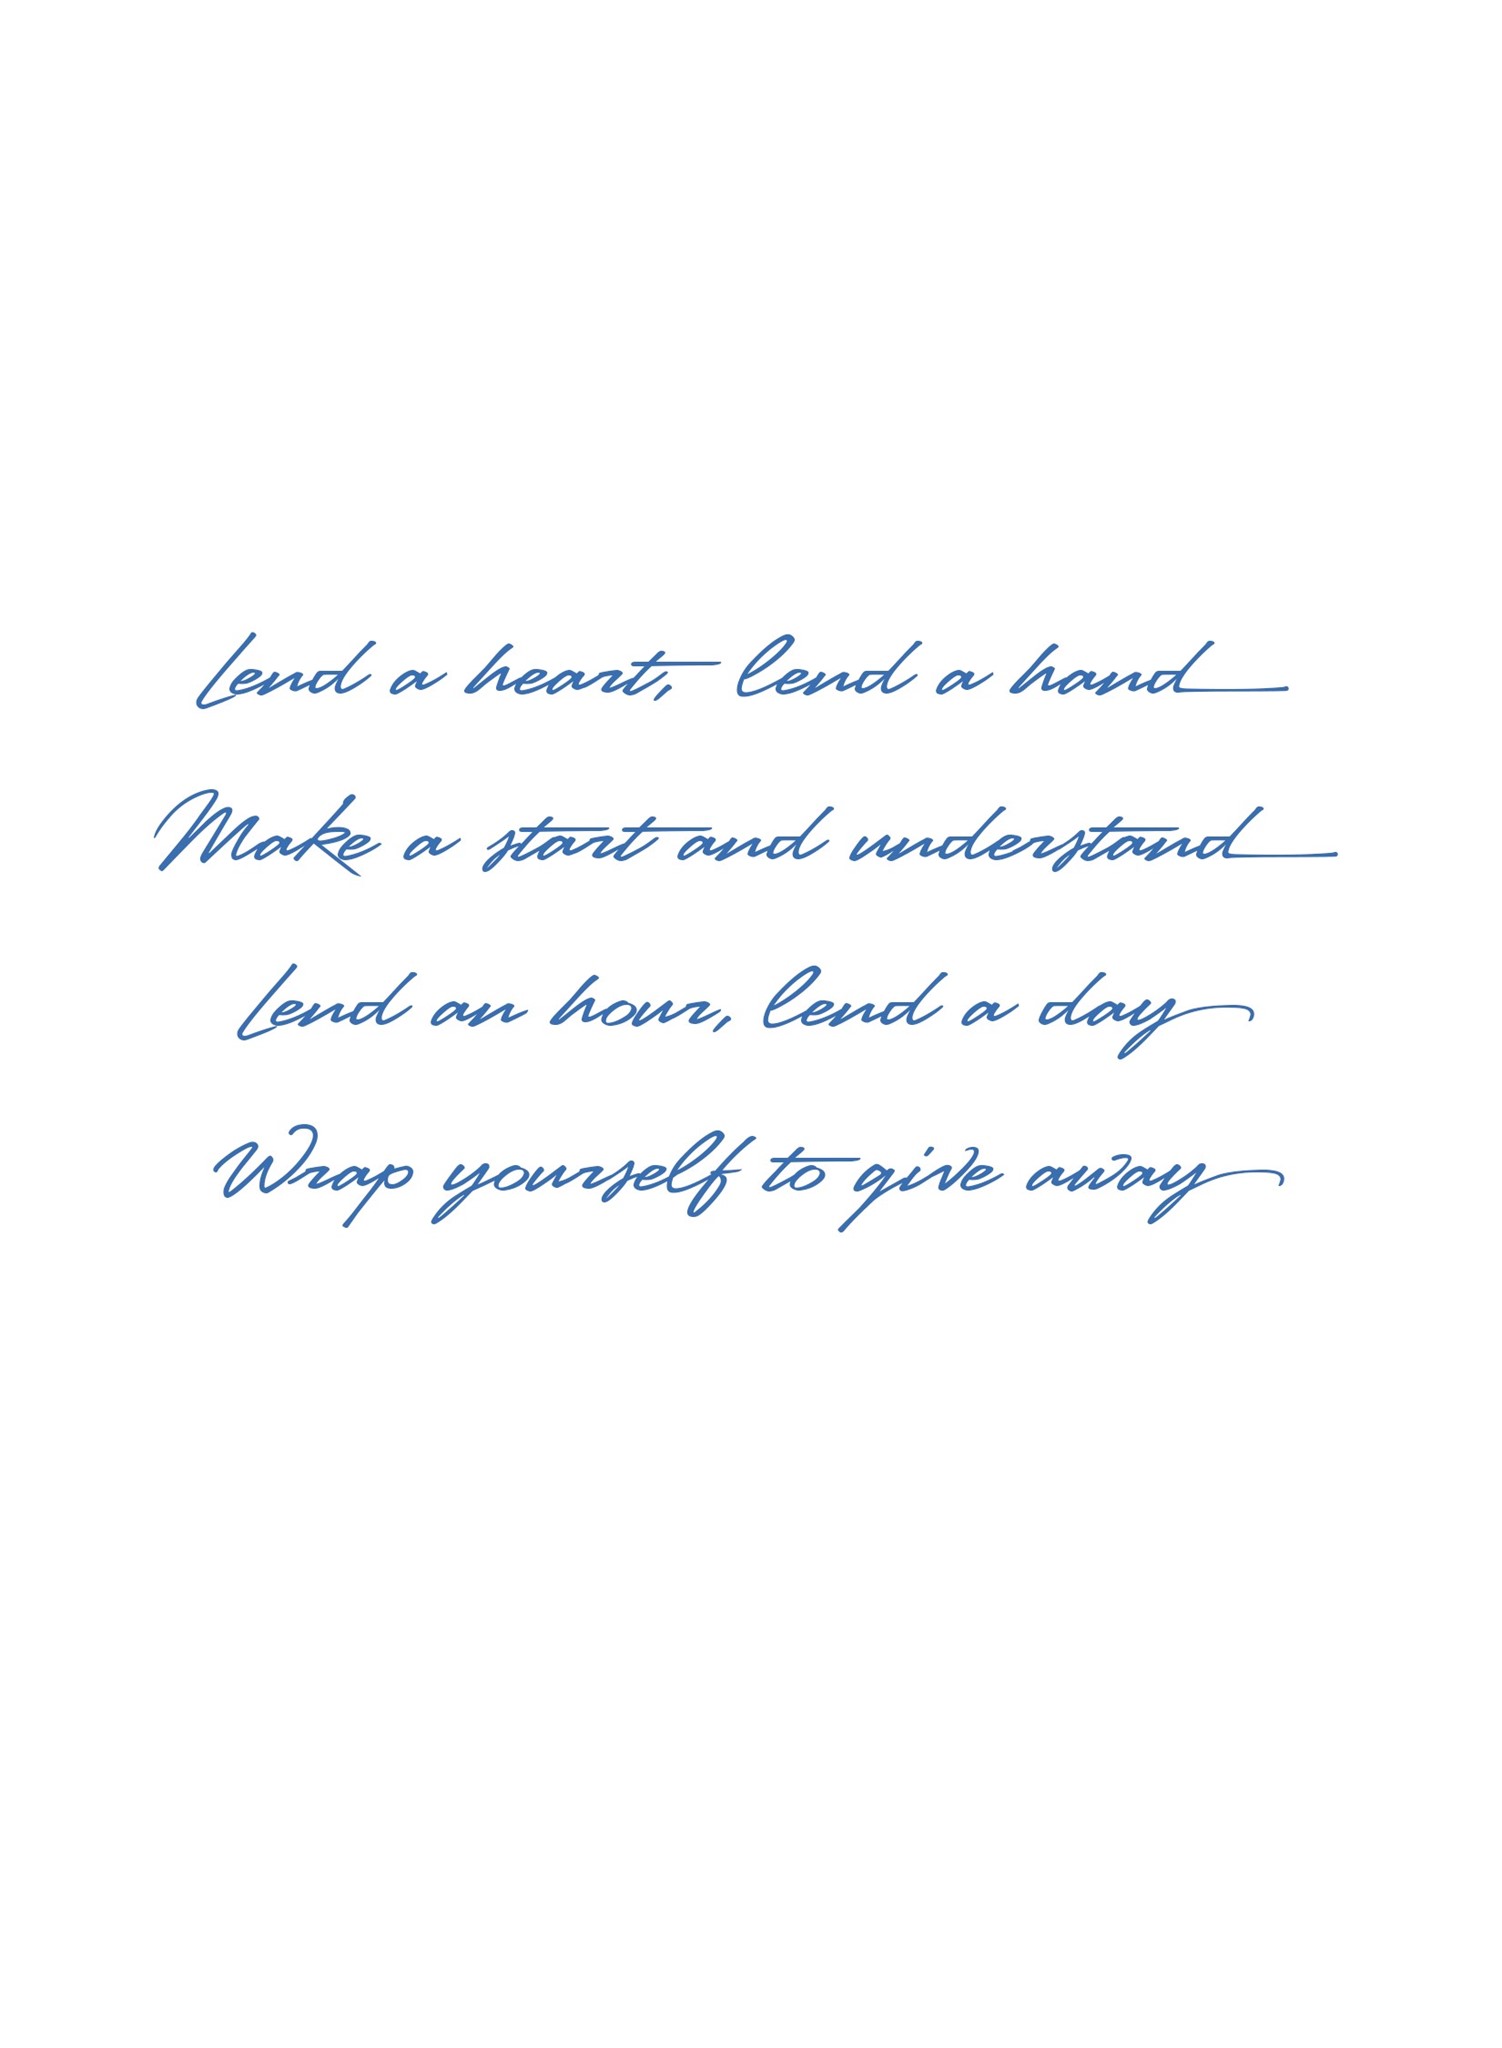 Lend a heart, lend a hand
Make a start and understand
Lend an hour, lend a day
Wrap yourself to give away